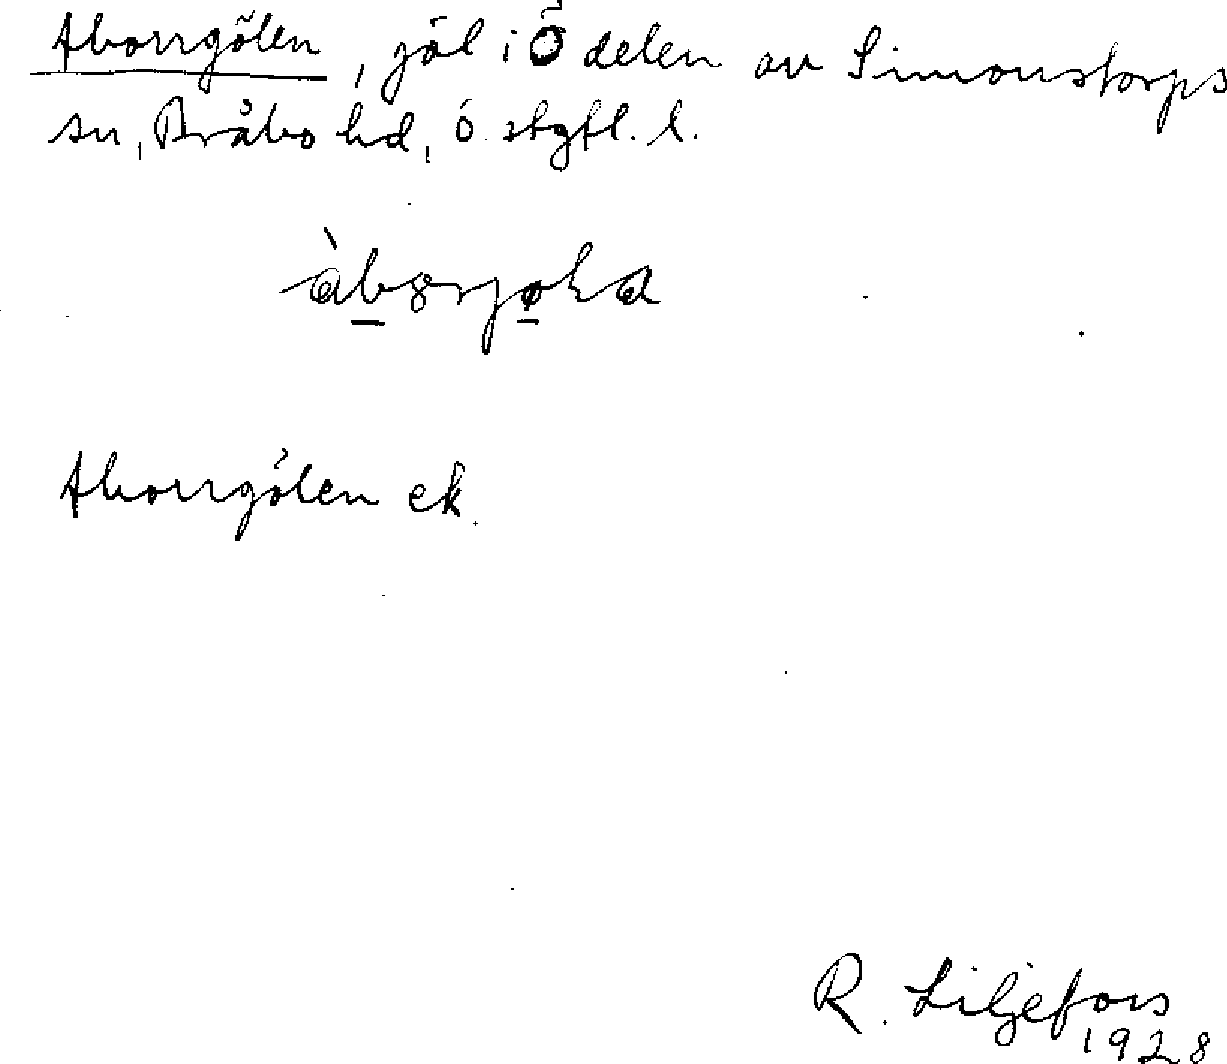 Aborrgölen, göl i Ö delen av Simonstorps
sn, Bråbo hd, Östgtl. l.
Aborrgölen ek.
R. Liljefors
1928